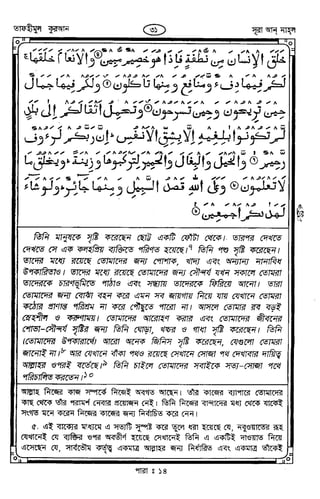 তাফহীমুল কুরআন
৩১
সূরা আন্ নাহ্‌ল
خَلَقَ الْإِنْسَانَ مِنْ نُطْفَةٍ فَإِذَا هُوَ خَصِيمٌ مُبِينٌ ۝ وَالْأَنْعَامَ خَلَقَهَا ۚ
لَكُمْ فِيهَا دِفْءٌ وَمَنَافِعُ وَمِنْهَا تَأْكُلُونَ ۝ وَلَكُمْ فِيهَا جَمَالٌ
حِينَ تُرِيحُونَ وَحِينَ تَسْرَحُونَ ۝ وَتَحْمِلُ أَثْقَالَكُمْ إِلَىٰ بَلَدٍ
لَمْ تَكُونُوا بَالِغِيهِ إِلَّا بِشِقِّ الْأَنْفُسِ ۚ إِنَّ رَبَّكُمْ لَرَءُوفٌ
رَحِيمٌ ۝ وَالْخَيْلَ وَالْبِغَالَ وَالْحَمِيرَ لِتَرْكَبُوهَا وَزِينَةً ۚ وَيَخْلُقُ مَا
لَا تَعْلَمُونَ ۝ وَعَلَى اللَّهِ قَصْدُ السَّبِيلِ وَمِنْهَا جَائِرٌ ۚ وَلَوْ شَاءَ
لَهَدَاكُمْ أَجْمَعِينَ ۝
তিনি মানুষকে সৃষ্টি করেছেন ছোট্ট একটি ফোঁটা থেকে। তারপর দেখতে
দেখতে সে এক কলহপ্রিয় ব্যক্তিতে পরিণত হয়েছে।৭ তিনি পশু সৃষ্টি করেছেন।
তাদের মধ্যে রয়েছে তোমাদের জন্য পোশাক, খাদ্য এবং অন্যান্য নানাবিধ
উপকারিতাও। তাদের মধ্যে রয়েছে তোমাদের জন্য সৌন্দর্য যখন সকালে তোমরা
তাদেরকে চারণভূমিতে পাঠাও এবং সন্ধ্যায় তাদেরকে ফিরিয়ে আনো। তারা
তোমাদের জন্য বোঝা বহন করে এমন সব জায়গায় নিয়ে যায় যেখানে তোমরা
কঠোর প্রাণান্ত পরিশ্রম না করে পৌঁছুতে পারো না। আসলে তোমার রব বড়ই
স্নেহশীল ও করুণাময়। তোমাদের আরোহণ করার এবং তোমাদের জীবনের
শোভা-সৌন্দর্য সৃষ্টির জন্য তিনি ঘোড়া, খচ্চর ও গাধা সৃষ্টি করেছেন। তিনি
(তোমাদের উপকারার্থে) আরো অনেক জিনিস সৃষ্টি করেছেন, যেগুলো তোমরা
জানোই না।৮ আর যেখানে বাঁকা পথও রয়েছে সেখানে সোজা পথ দেখাবার দায়িত্ব
আল্লাহর ওপরই বর্তেছে।৯ তিনি চাইলে তোমাদের সবাইকে সত্য-সোজা পথে
পরিচালিত করতেন।১০
আল্লাহ নিজের কাজ সম্পর্কে নিজেই অবগত আছেন। তাঁর কাজের ব্যাপারে তোমাদের
কাছ থেকে তাঁর পরামর্শ নেবার প্রয়োজন নেই। তিনি নিজের বান্দাদের মধ্য থেকে যাকেই
সংগত মনে করেন নিজের কাজের জন্য নির্বাচিত করে নেন।
৫. এই বাক্যের মাধ্যমে এ সত্যটি সুস্পষ্ট করে তুলে ধরা হয়েছে যে, নবুওয়াতের রূহ
যেখানেই যে ব্যক্তির ওপর অবতীর্ণ হয়েছে সেখানেই তিনি এ একটিই দাওয়াত নিয়ে
এসেছেন যে, সার্বভৌম কর্তৃত্ব একমাত্র আল্লাহর জন্য নির্ধারিত এবং একমাত্র তাঁকেই
পারা : ১৪